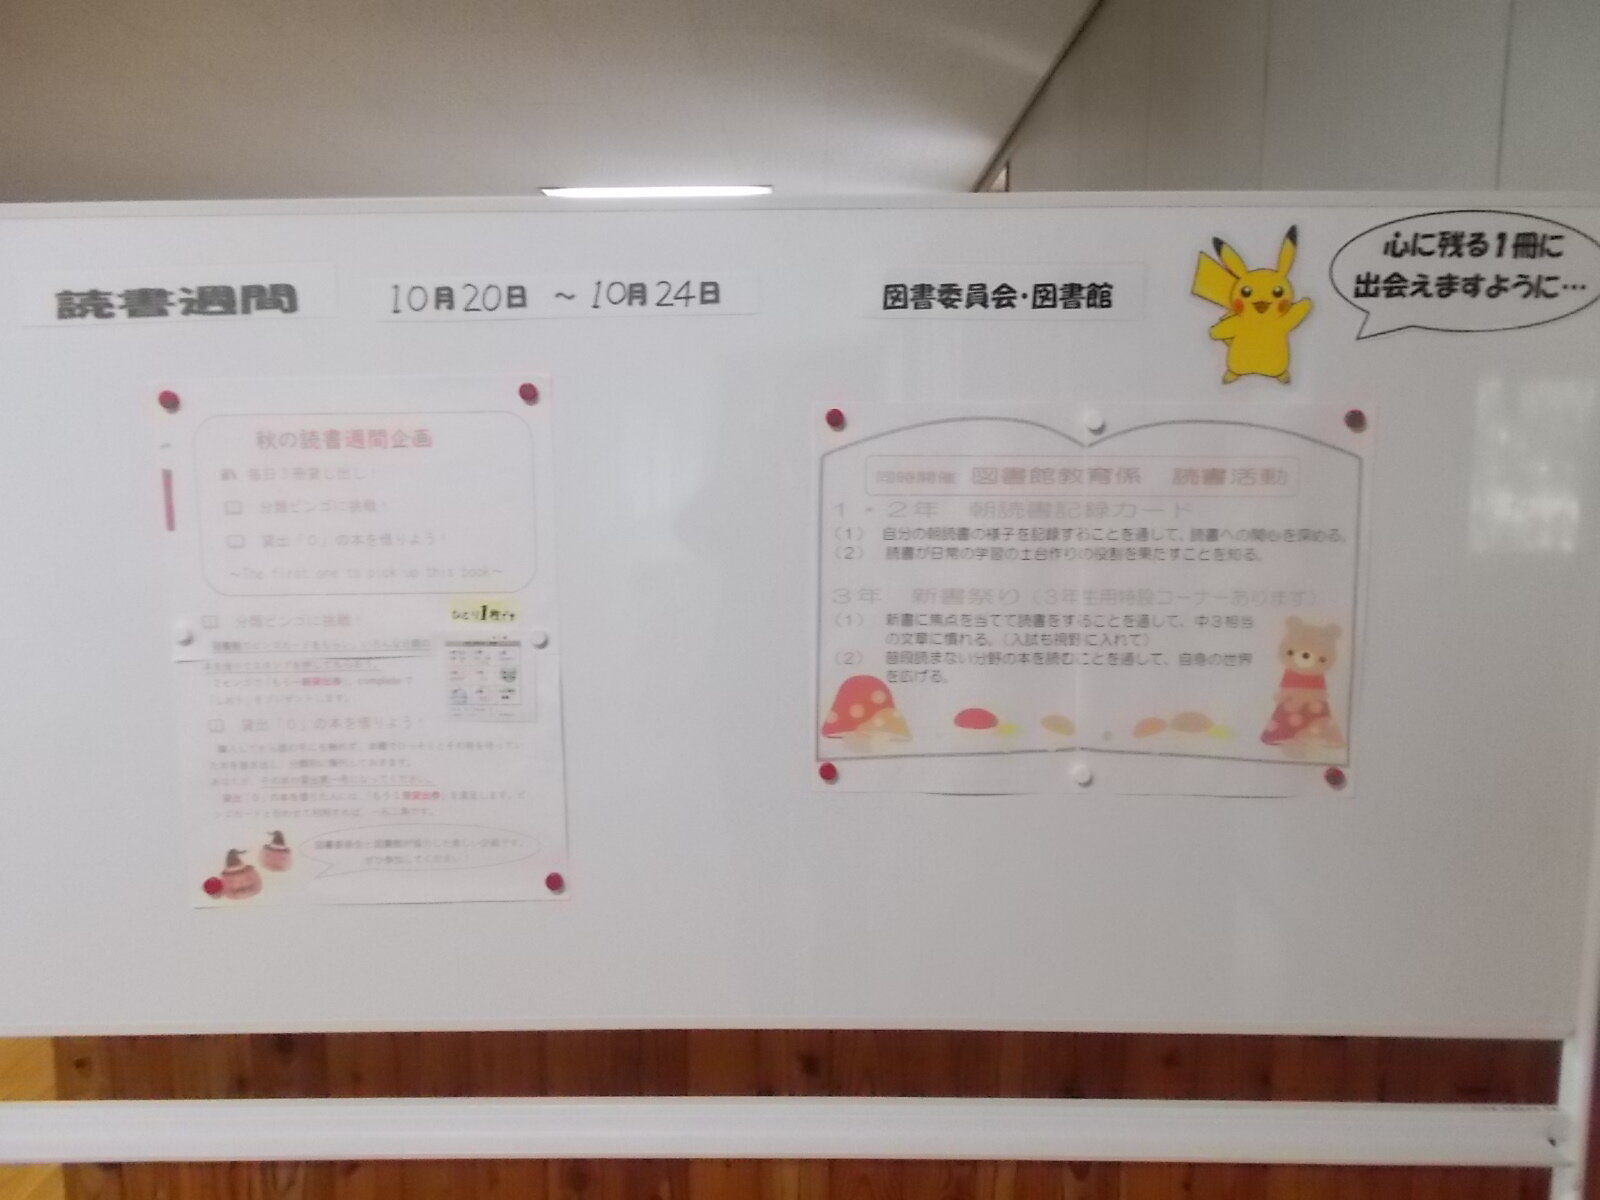 読書週間
10月20日 ～10月24日
図書委員会・図書館
心に残る1冊に
出会えますように…
秋の読書週間企画
毎日3冊貸し出し！
分類ビンゴに挑戦！
貸出「0」の本を借りよう！
～The first one to pick up this book～
分類ビンゴに挑戦！
ひとり1枚です
貸出「0」の本を借りよう！
図書委員会と図書館が協力した楽しい企画です。
ぜひ参加してください！
同時開催 図書館教育係 読書活動
1・2年 朝読書記録カード
(1) 自分の朝読書の様子を記録することを通して、読書への関心を深める。
(2) 読書が日常の学習の土台作りの役割を果たすことを知る。
3年 新書祭り(3年生用特設コーナーあります)
(1) 新書に焦点を当てて読書をすることを通して、中3相当
の文章に慣れる。(入試も視野に入れて)
(2) 普段読まない分野の本を読むことを通して、自身の世界
を広げる。